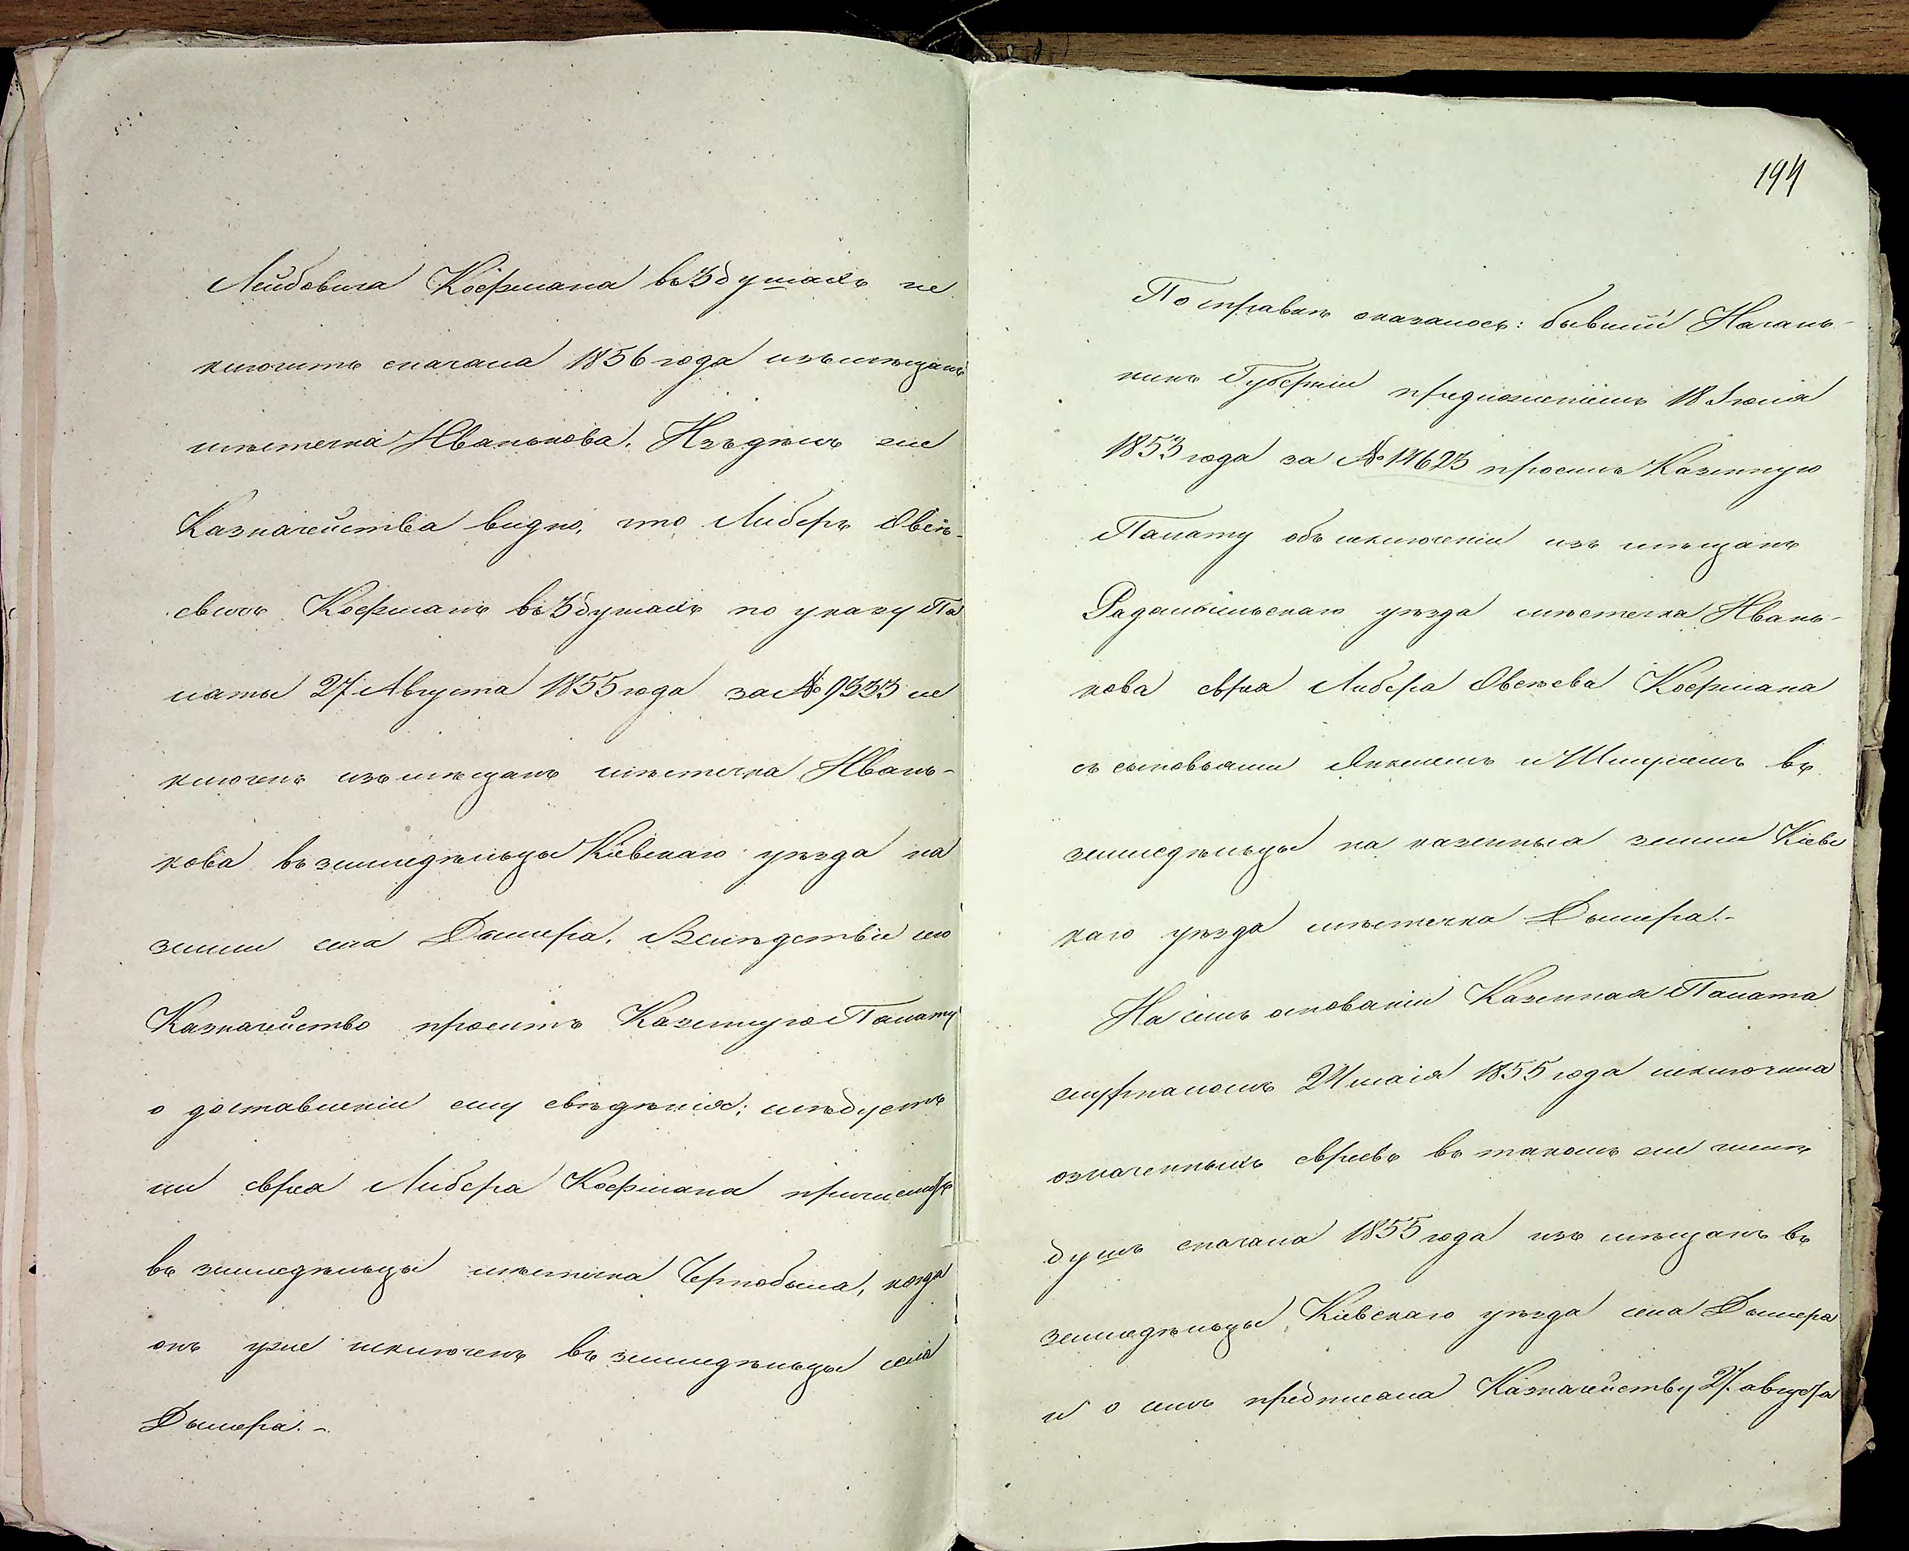 Лейбовича Кофмана въ 3 душахъ ис
ключить сначала 1856 года изъ мѣщанъ
мѣстечка Иванькова. Изъ дѣлъ же
Казначейства видно, что Либеръ Овсѣ-
евичъ Кофманъ въ 3 душахъ по указу Па
латы 27 Августа 1855 года за № 9333 ис
ключенъ изъ мѣщанъ мѣстечка Ивань-
кова въ земледѣльцы Кіевскаго уѣзда на
земли села Дымера. Вслѣдствіе сего
Казначейство проситъ Казенную Палату
о доставленіи ему свѣдѣнія; слѣдуетъ
ли еврея Либера Кофмана причислять
въ земледѣльцы мѣстечка Чернобыля, когда
онъ уже исключенъ въ земледѣльцы села
Дымера.-
194
По справкѣ оказалось: бывшій Началь-
никъ Губерніи предложеніемъ 18 Іюля
1853 года за № 14623 просилъ Казенную
Палату объ исключеніи изъ мѣщанъ
Радомысльскаго уѣзда мѣстечка Ивань-
кова еврея Либера Овсѣева Кофмана
съ сыновьями Янкелемъ и Шмулемъ въ
земледѣльцы на казенныя земли Кіевс
каго уѣзда мѣстечка Дымера.-
На семъ основаніи Казенная Палата
журналомъ 24 маія 1855 года исключила
означенныхъ евреевъ въ такомъ же числѣ
душъ сначала 1855 года изъ мѣщанъ въ
земледѣльцы Кіевскаго уѣзда села Дымера
и о семъ предписала Казначейству 27 августа